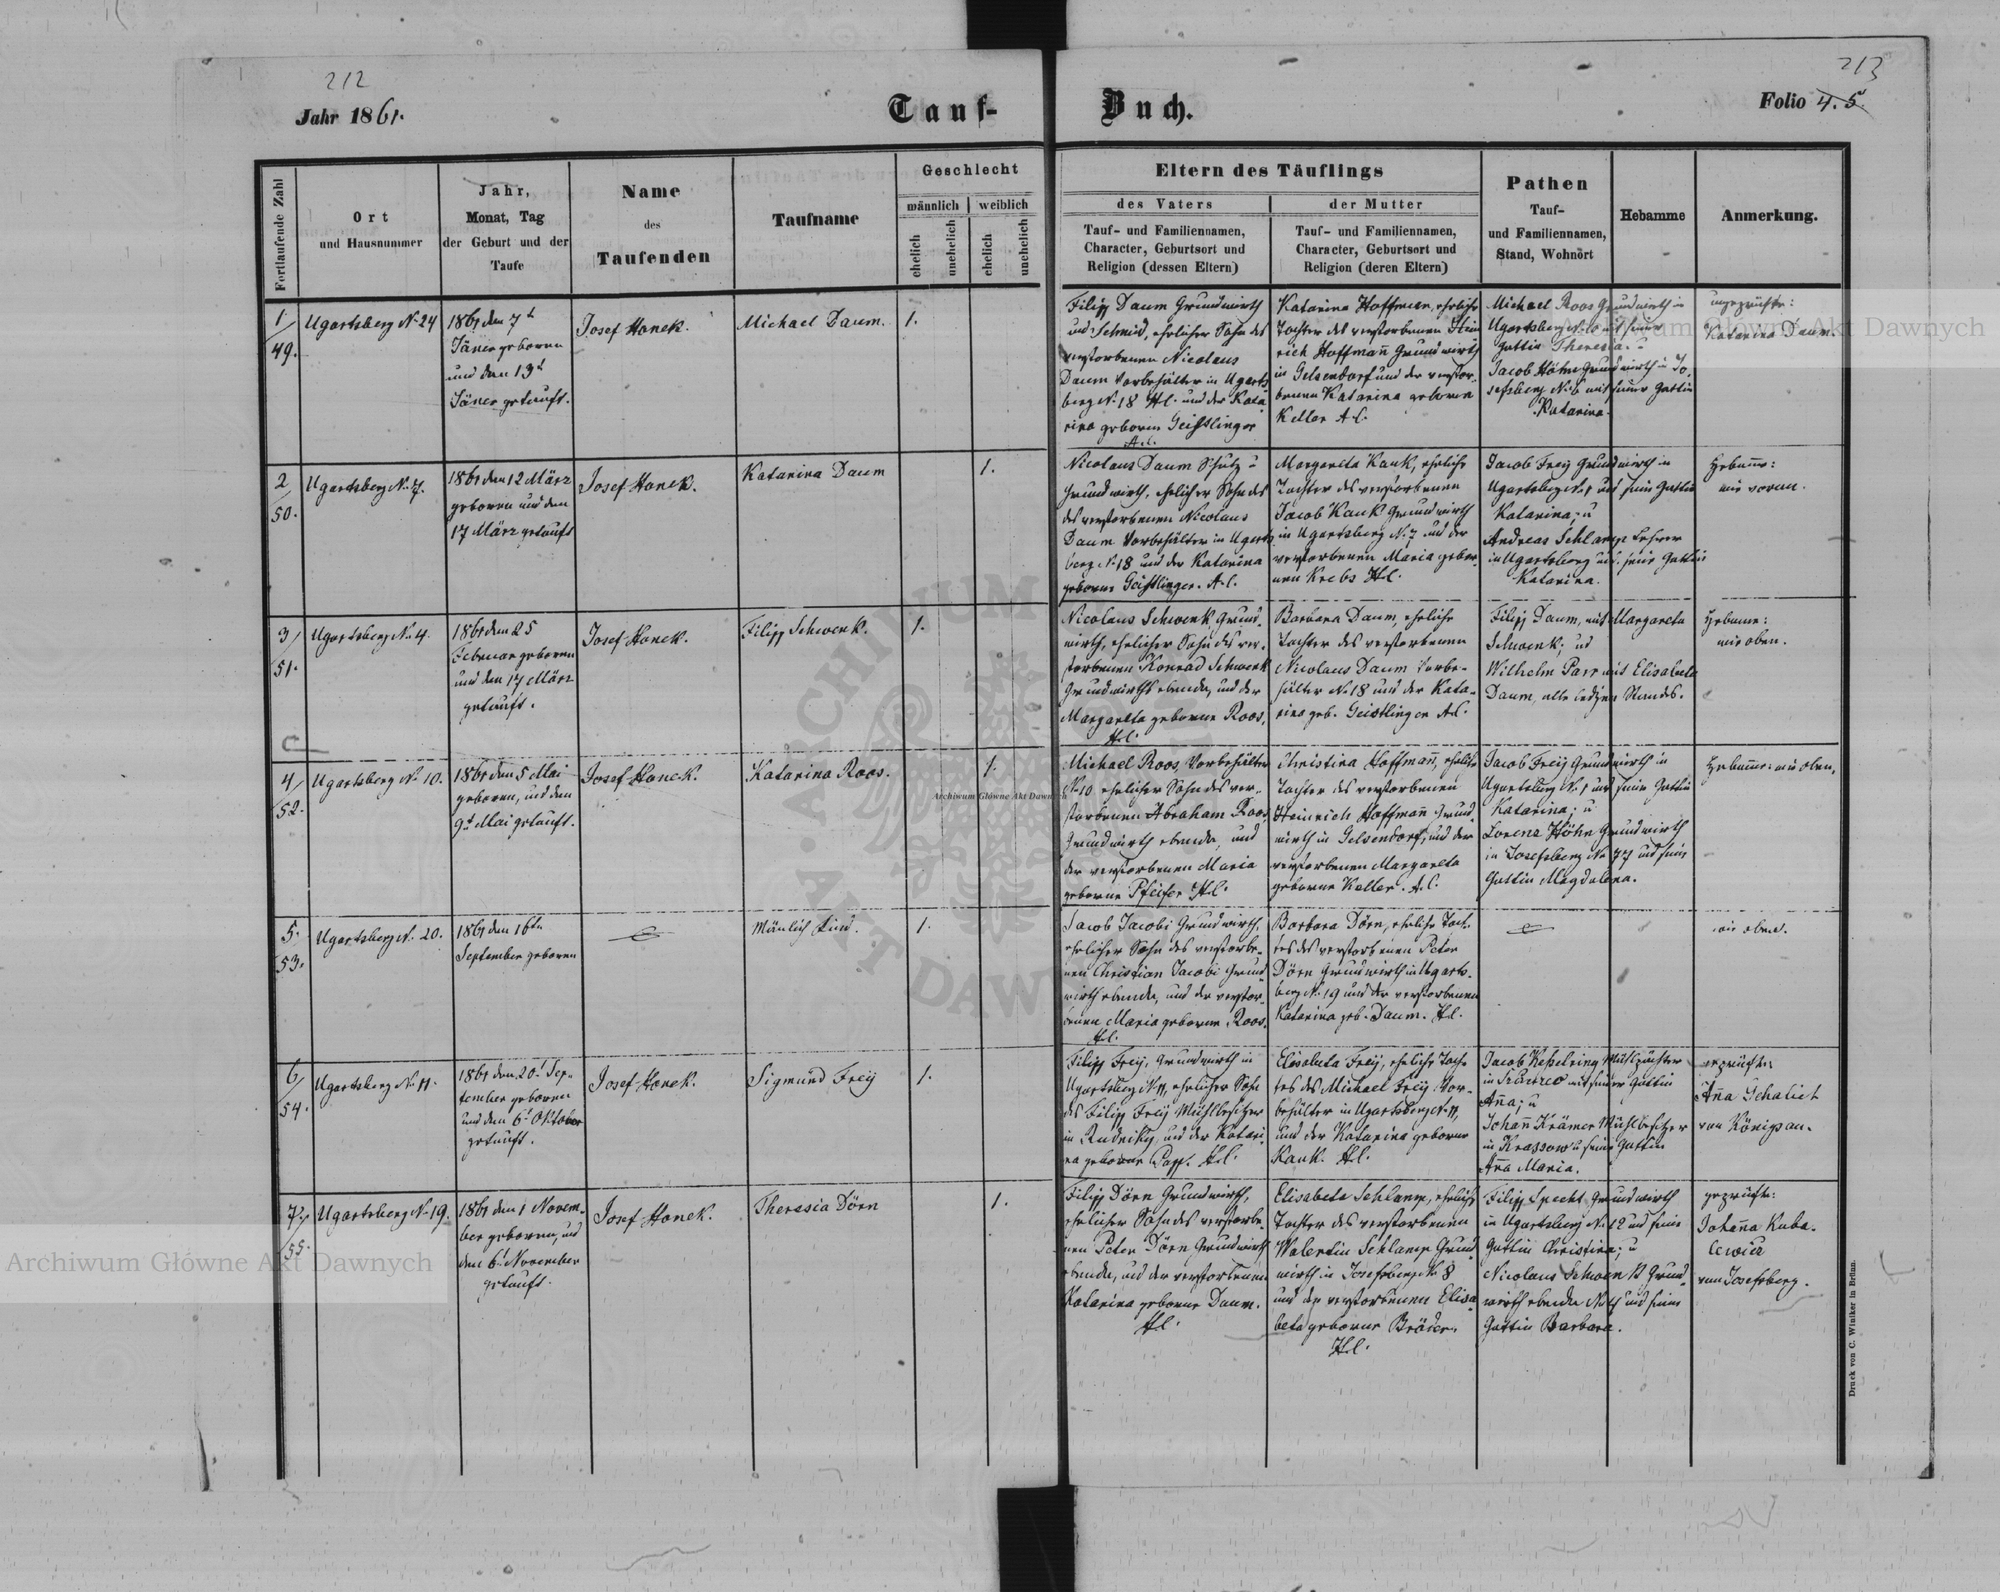 212
213
Jahr 1861.
Tauf-
Buch.
Folio 4. 5.
Fortlaufende Zahl
Ort
und Hausnummer
Jahr,
Monat, Tag
der Geburt und der
Taufe
Name
des
Taufenden
Taufname
Geschlecht
männlich
weiblich
ehelich
unehelich
ehelich
unehelich
Eltern des Täuflings
des Vaters
Tauf- und Familiennamen,
Character, Geburtsort und
Religion (dessen Eltern)
der Mutter
Tauf- und Familiennamen,
Character, Geburtsort und
Religion (deren Eltern)
Pathen
Tauf-
und Familiennamen,
Stand, Wohnort
Hebamme
Anmerkung.
1/
49.
Ugartsberg No 24
1861 den 7t
Jäner geboren
und den 13t
Jäner getauft.
Josef Honek.
Michael Daum.
1.
Filipp Daum Grundwirth
und Schmid, ehelicher Sohn des
verstorbenen Nicolaus
Daum Vorbehälter in Ugarts
berg No 18 H.C. und der Kata
rina geborne Geistlinger
A.C.
Katarina Hoffman, eheliche
Tochter des verstorbenen Hein
rich Hoffmann Grundwirth
in Gelsendorf und der verstor
benen Katarina geborene
Keller A.C.
Michael Roos Grundwirth in
Ugartsberg No 10 mit seiner
Gattin Theresia u
Jacob Höhn Grundwirth in Jo
sefsberg No 6 mit seiner Gattin
Katarina.
ungeprüfte:
Katarina Daum.
2/
50.
Ugartsberg No 7.
1861 den 12 März
geboren und den
17 März getauft
Josef Honek.
Katarina Daum
1.
Nicolaus Daum Schulz u
Grundwirth, ehelicher Sohn des
des verstorbenen Nicolaus
Daum Vorbehälter in Ugarts
berg No 18 und der Katarina
geborne Geistlinger. A.C.
Margareta Kauk, eheliche
Tochter des verstorbenen
Jacob Kauk Grundwirth
in Ugartsberg No 7 und der
verstorbenen Maria gebor
nen Krebs H.C.
Jacob Freÿ Grundwirth in
Ugartsberg No 1 und seine Gattin
Katarina; u
Andreas Schlamp Lehrer
in Ugartsberg und seine Gattin
Katarina.
Hebame:
wie voran.
3/
51.
Ugartsberg No 4.
1861 den 25
Februar geboren
und den 17 März
getauft.
Josef Honek.
Filipp Schwenk.
1.
Nicolaus Schwenk, Grund
wirth, ehelicher Sohn des ver
storbenen Konrad Schwenk
Grundwirths ebenda, und der
Margareta geborne Roos.
H.C.
Barbara Daum, eheliche
Tochter des verstorbenen
Nicolaus Daum Vorbe-
hälter No 18 und der Kata-
rina geb. Geistlinger A.C.
Filipp Daum, mit Margareta
Schwenk; und
Wilhelm Parr mit Elisabeta
Daum, alle ledigen Standes.
Hebame:
wie oben.
4/
52.
Ugartsberg No 10.
1861 den 5 Mai
geboren, und den
9t Mai getauft.
Josef Honek.
Katarina Roos.
1.
Michael Roos, Vorbehälter
No 10 ehelicher Sohn des ver-
storbenen Abraham Roos
Grundwirth ebenda, und
der verstorbenen Maria
geborne Pfeifer H.C.
Christina Hoffmann, eheliche
Tochter des verstorbenen
Heinrich Hoffmann Grund
wirth in Gelsendorf, und der
verstorbenen Margareta
geborne Keller. A.C.
Jacob Freÿ Grundwirth in
Ugartsberg No 1 und seine Gattin
Katarina; u
Lorenz Höhn Grundwirth
in Josefsberg No 77 und seine
Gattin Magdalena.
Hebame: wie oben.
5.
53.
Ugartsberg No 20.
1861 den 16ten
September geboren
Mänlich Kind.
1.
Jacob Jacobi Grundwirth,
ehelicher Sohn des verstorbe-
nen Christian Jacobi Grund
wirth ebenda, und der verstor-
benen Maria geborne Roos.
H.C.
Barbara Dörn, eheliche Toch-
ter des verstorbenen Peter
Dörn Grundwirth in Ugarts-
berg No 19 und der verstorbenen
Katarina geb. Daum. H.C.
wie oben.
6/
54.
Ugartsberg No 11.
1861 den 20t Sep-
tember geboren
und den 6t Oktober
getauft.
Josef Honek.
Sigmund Freÿ
1.
Filipp Freÿ, Grundwirth in
Ugartsberg No 11, ehelicher Sohn
des Filipp Freÿ Mühlbesitzer
in Rudniky, und der Katari
na geborne Popp. H.C.
Elisabeta Freÿ, eheliche Toch-
ter des Michael Freÿ Vor-
behälter in Ugartsberg No 11,
und der Katarina geborne
Kauk. H.C.
Jacob Keßelring Mühlpächter
in mit seiner Gattin
Anna; u
Johann Krämer Mühlbesitzer
in Krassow u seine Gattin
Anna Maria.
geprüfte
Anna Schaliet
von Königsau.
7./
55.
Ugartsberg No 19.
1861 den 1 Novem-
ber geboren, und
den 6t November
getauft.
Josef Honek.
Theresia Dörn
1.
Filipp Dörn Grundwirth,
ehelicher Sohn des verstorbe-
nen Peter Dörn Grundwirth
ebenda, und der verstorbenen
Katarina geborne Daum.
H.C.
Elisabeta Schlamp, eheliche
Tochter des verstorbenen
Walentin Schlamp Grund
wirth in Josefsberg No 8
und der verstorbenen Elisa
beta geborne Bräder,
H.C.
Filipp Specht Grundwirth
in Ugartsberg No 12 und seine
Gattin Christina; u
Nicolaus Schwenk Grund-
wirth ebenda No 4 und seine
Gattin Barbara.
geprüfte:
Johanna Kuba-
lewicz
von Josefsberg.
Druck von C. Winiker in Brünn.
Archiwum Główne Akt Dawnych
Archiwum Główne Akt Dawnych
Archiwum Główne Akt Dawnych
ARCHIWUM
AKT DAWNYCH